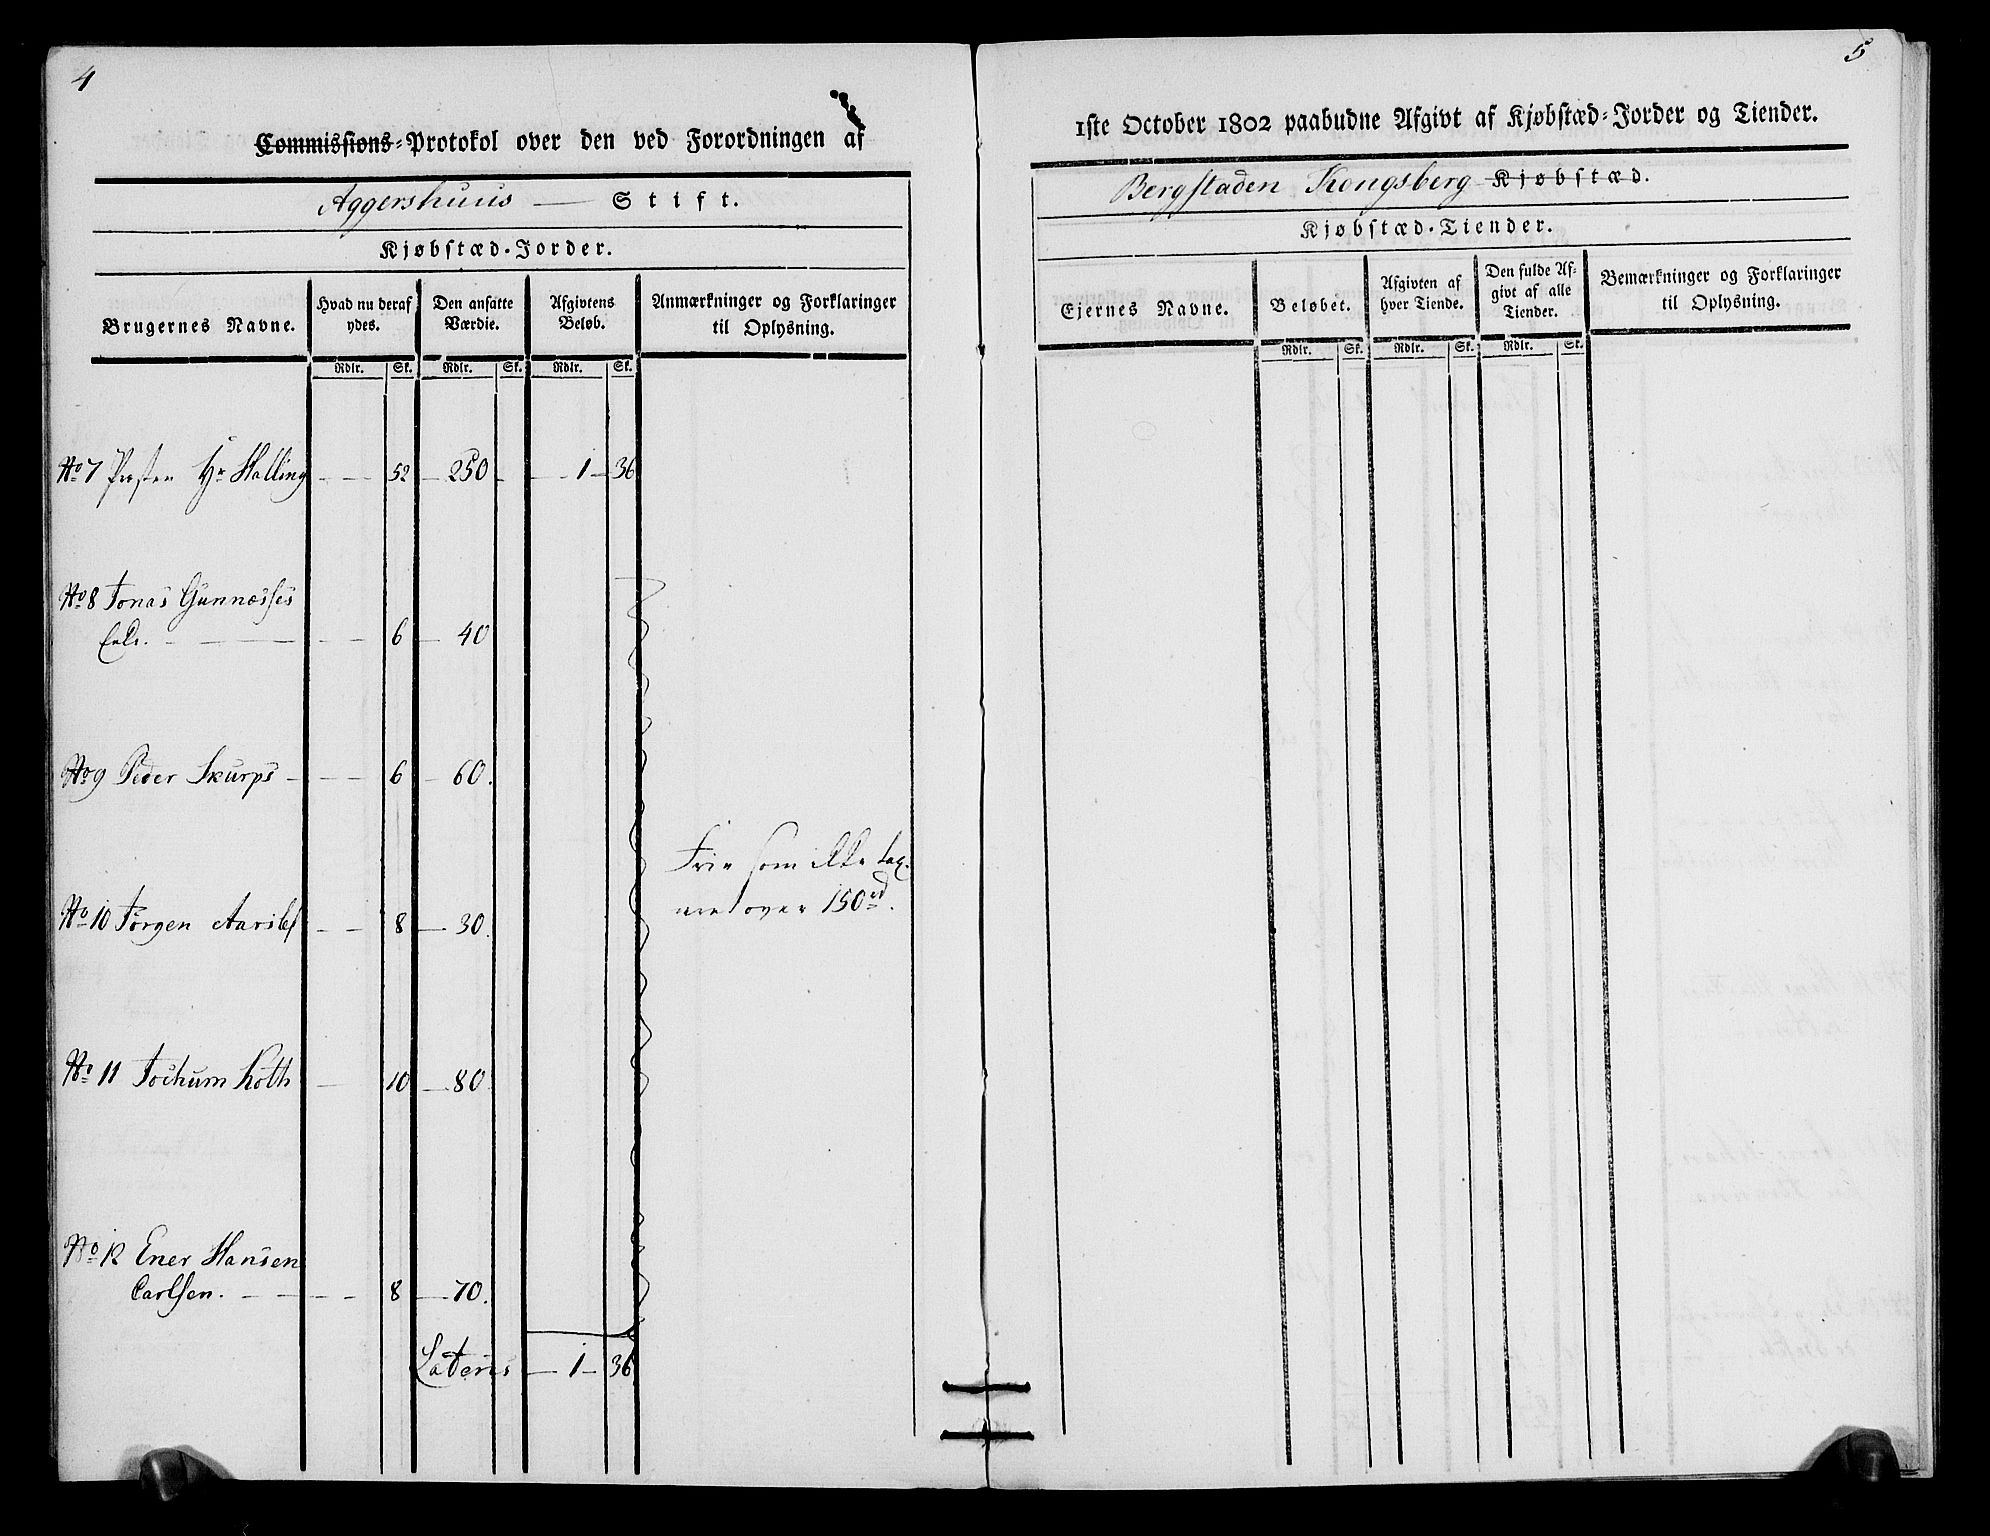 4
Commissions-Protokol over den ved Forordningen af
Aggershuus — Stift.
Kjøbstæd-Jorder.
Brugernes Navne.
Hvad nu deraf ydes.
Den ansatte Værdie.
Afgivtens Beløb.
Anmærkninger og Forklaringer til Oplysning.
Rdlr. Sk. Rdlr. Sk. Rdlr. Sk.
No 7 Præsten Hr Halling — — 52 — 250 — — 1 — 36
No 8 Jonas Gunnæsses
— — 6 — 40
No 9 Peder Skurps — — — 6 — 60.
Frie som ikke tax-
eret over 150 rd.
No 10 Jørgen — — 8 — 30.
No 11 Jochum Koth — 10 — 80
No 12 Ener Hansen
Carlsen. — — — — 8 — 70.
Lateris — 1 — 36
5
1ste October 1802 paabudne Afgivt af Kjøbstæd-Jorder og Tiender.
Bergstaden Kongsberg Kjøbstæd.
Kjøbstæd-Tiender.
Ejernes Navne.
Beløbet.
Afgivten af hver Tiende.
Den fulde Af-
givt af alle
Tiender.
Bemærkninger og Forklaringer til Oplysning.
Rdlr. Sk. Rdlr. Sk. Rdlr. Sk.